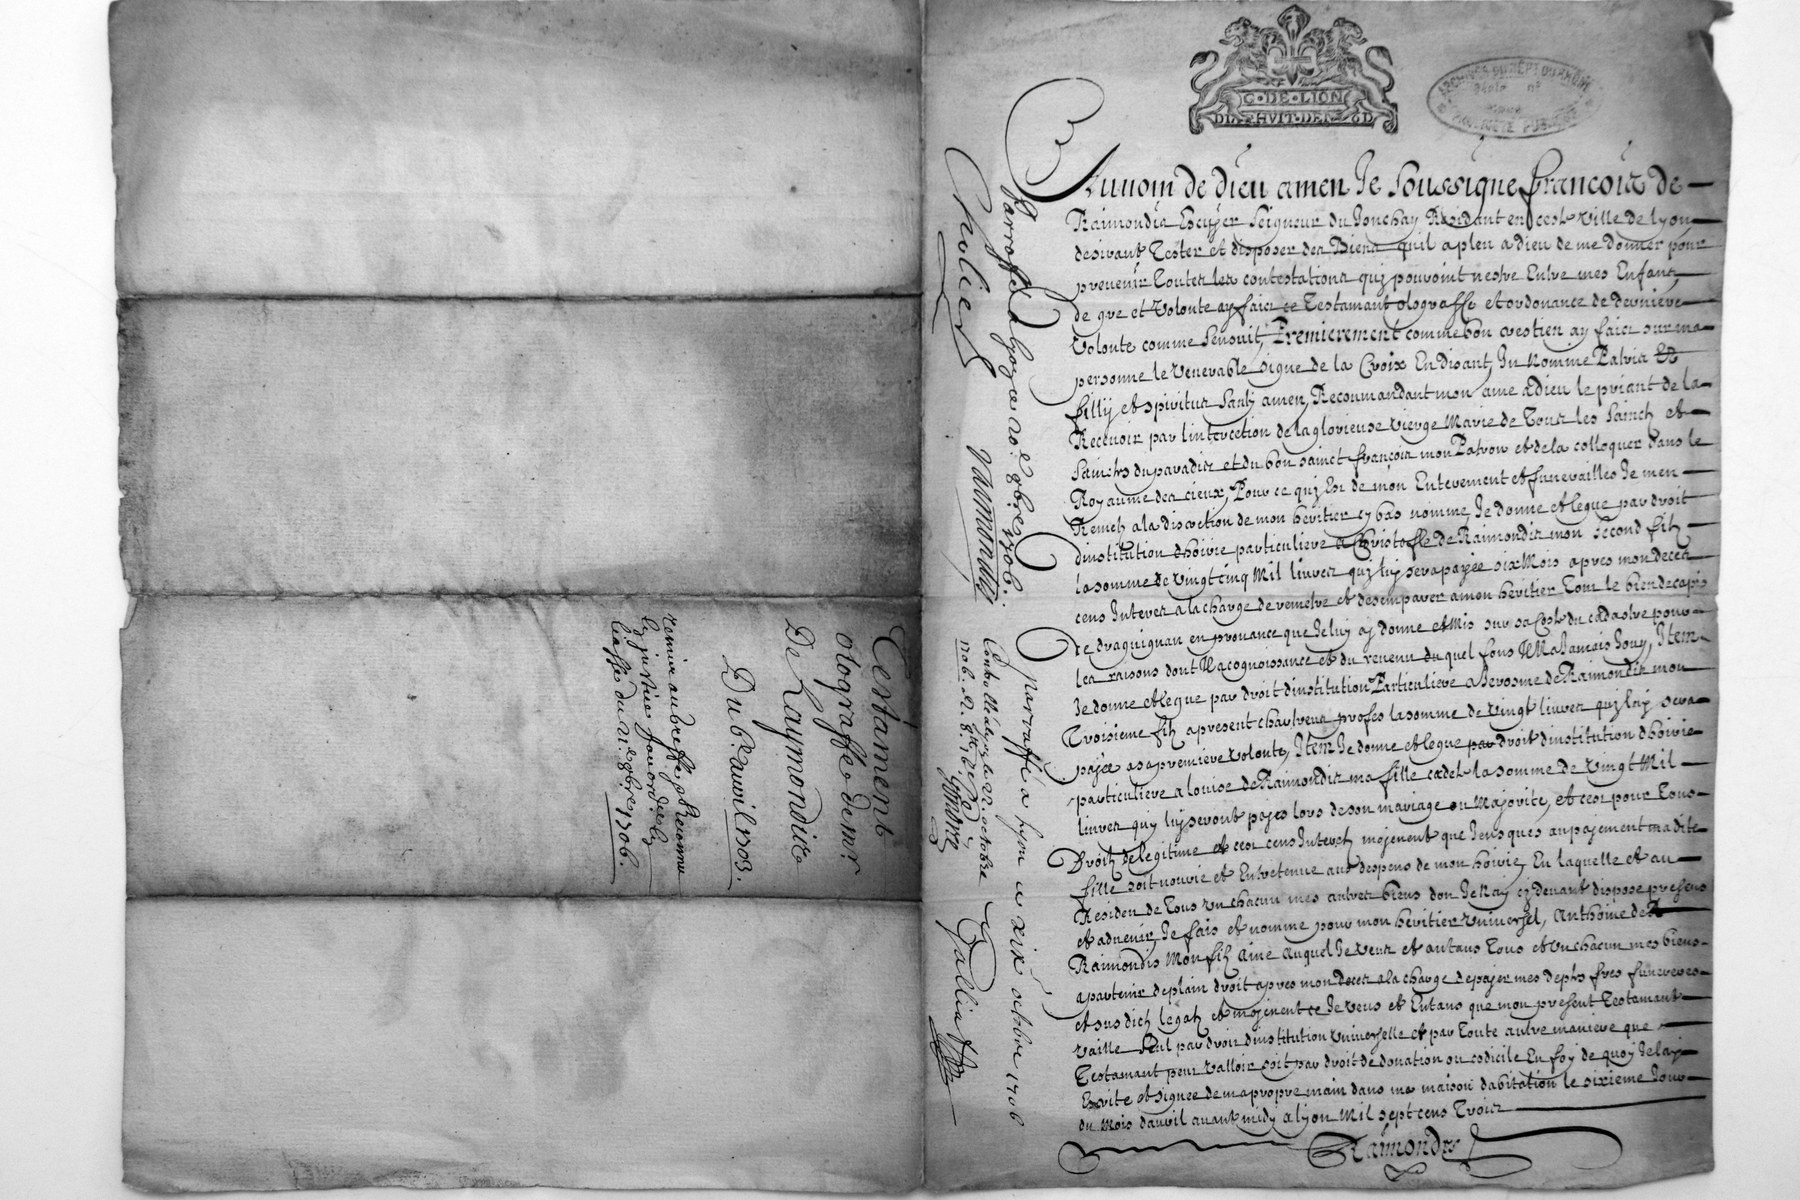 G·DE·LION
HVIT·DEN
ARCHIVES DU DEPT DU RHONE
PROPRIÉTÉ PUBLIQUE
Au nom de dieu amen Je soussigne francois de
Raimondis Escuyer Seigneur du Jonchay Residant en ceste ville de lyon
desirant Tester et disposer des Biens quil a pleu a dieu de me donner pour
prevenir Toutes les contestations quy pouvoint nestre Entre mes Enfans
de gre et volonte ay faict ce Testamant olograffe et ordonance de derniere
volonte comme sensuit, Premierement comme bon crestien ay faict sur ma
personne le venerable signe de la Croix En disant, In nomine Patris Et
fillij et spiritus Santj amen, Recoumandant mon ame a dieu le priant de la
Recevoir par lintercetion de la glorieuse vierge Marie de Tous les Saincts et
Sainctes du paradis et du bon sainct francois mon Patron et de la colloquer dans le
Royaume des cieux, Pour ce quy Est de mon Enterement et funerailles Je men
Remets a la discretion de mon heritier cy bas nomme, Je donne et legue par droit
dinstitution dhoirie particuliere a Christoffle de Raimondis mon second fils
la somme de vingt cinq mil livres quy luy sera payée six Mois apres mon deces
cens Interes a la charge de remetre et desemparer a mon heritier Tout le bien de
ce draguignan en provance que Je luy ay donne et Mis sur sa Coste du cadastre pour
les raisons dont Il a cognoissance et du revenu du quel fons Il Na Jamais Jouy, Item
Je donne et legue par droit dinstitution Particuliere a Jerosme de Raimondis mon
Troisieme fils a present chartreux profes la somme de vingt livres quy luy sera
pajée a sa premiere volonte, Item Je donne et legue par droit dinstitution dhoirie
particuliere a louise de Raimondis ma fille cadete la somme de vingt Mil
livres quy luy seront pajes lors de son mariage ou Majorite, et ces pour Tous
Droits de legitime et ces cens Interets mojenent que Jusques au pajement ma dite
fille soit nourie et Entretenue aux despens de mon hoirie, En laquelle et au
Residen de Tous un chacun mes autres biens don Je Nay cy devant dispose presens
et advenir Je fais et nomme pour mon heritier universel, Anthoine de R
Raimondis Mon fils Aine auquel Je veux et antans Tous et un chacun mes biens
apartenir de plain droit apres mon deces a la charge de pajer mes deptes fres funeraires
et sus dicts legats et mojenent ce Je veus et Entans que mon present Testamant
vaille seul par droit dinstitution universelle et par Toute autre maniere que
Testamant peut valloir soit par droit de donation ou codicile En foy de quoy Je lay
Escrite et signée de ma propre main dans ma maison dabitation le sixieme Jour
du Mois davril avant midy a lyon Mil sept cens Trois
Raimondis
Parraffé a Lyon ce 20e 8bre 1706.
Cholier
raimondis
parraffé a lyon ce xixe octobre 1706
Controllé a Lyon le 22 octobre
1706.
Testament
olograffe de mr.
De Raymondis
Du 6e avril 1703.
remis au greffe
liasse du 21e 8bre 1706.